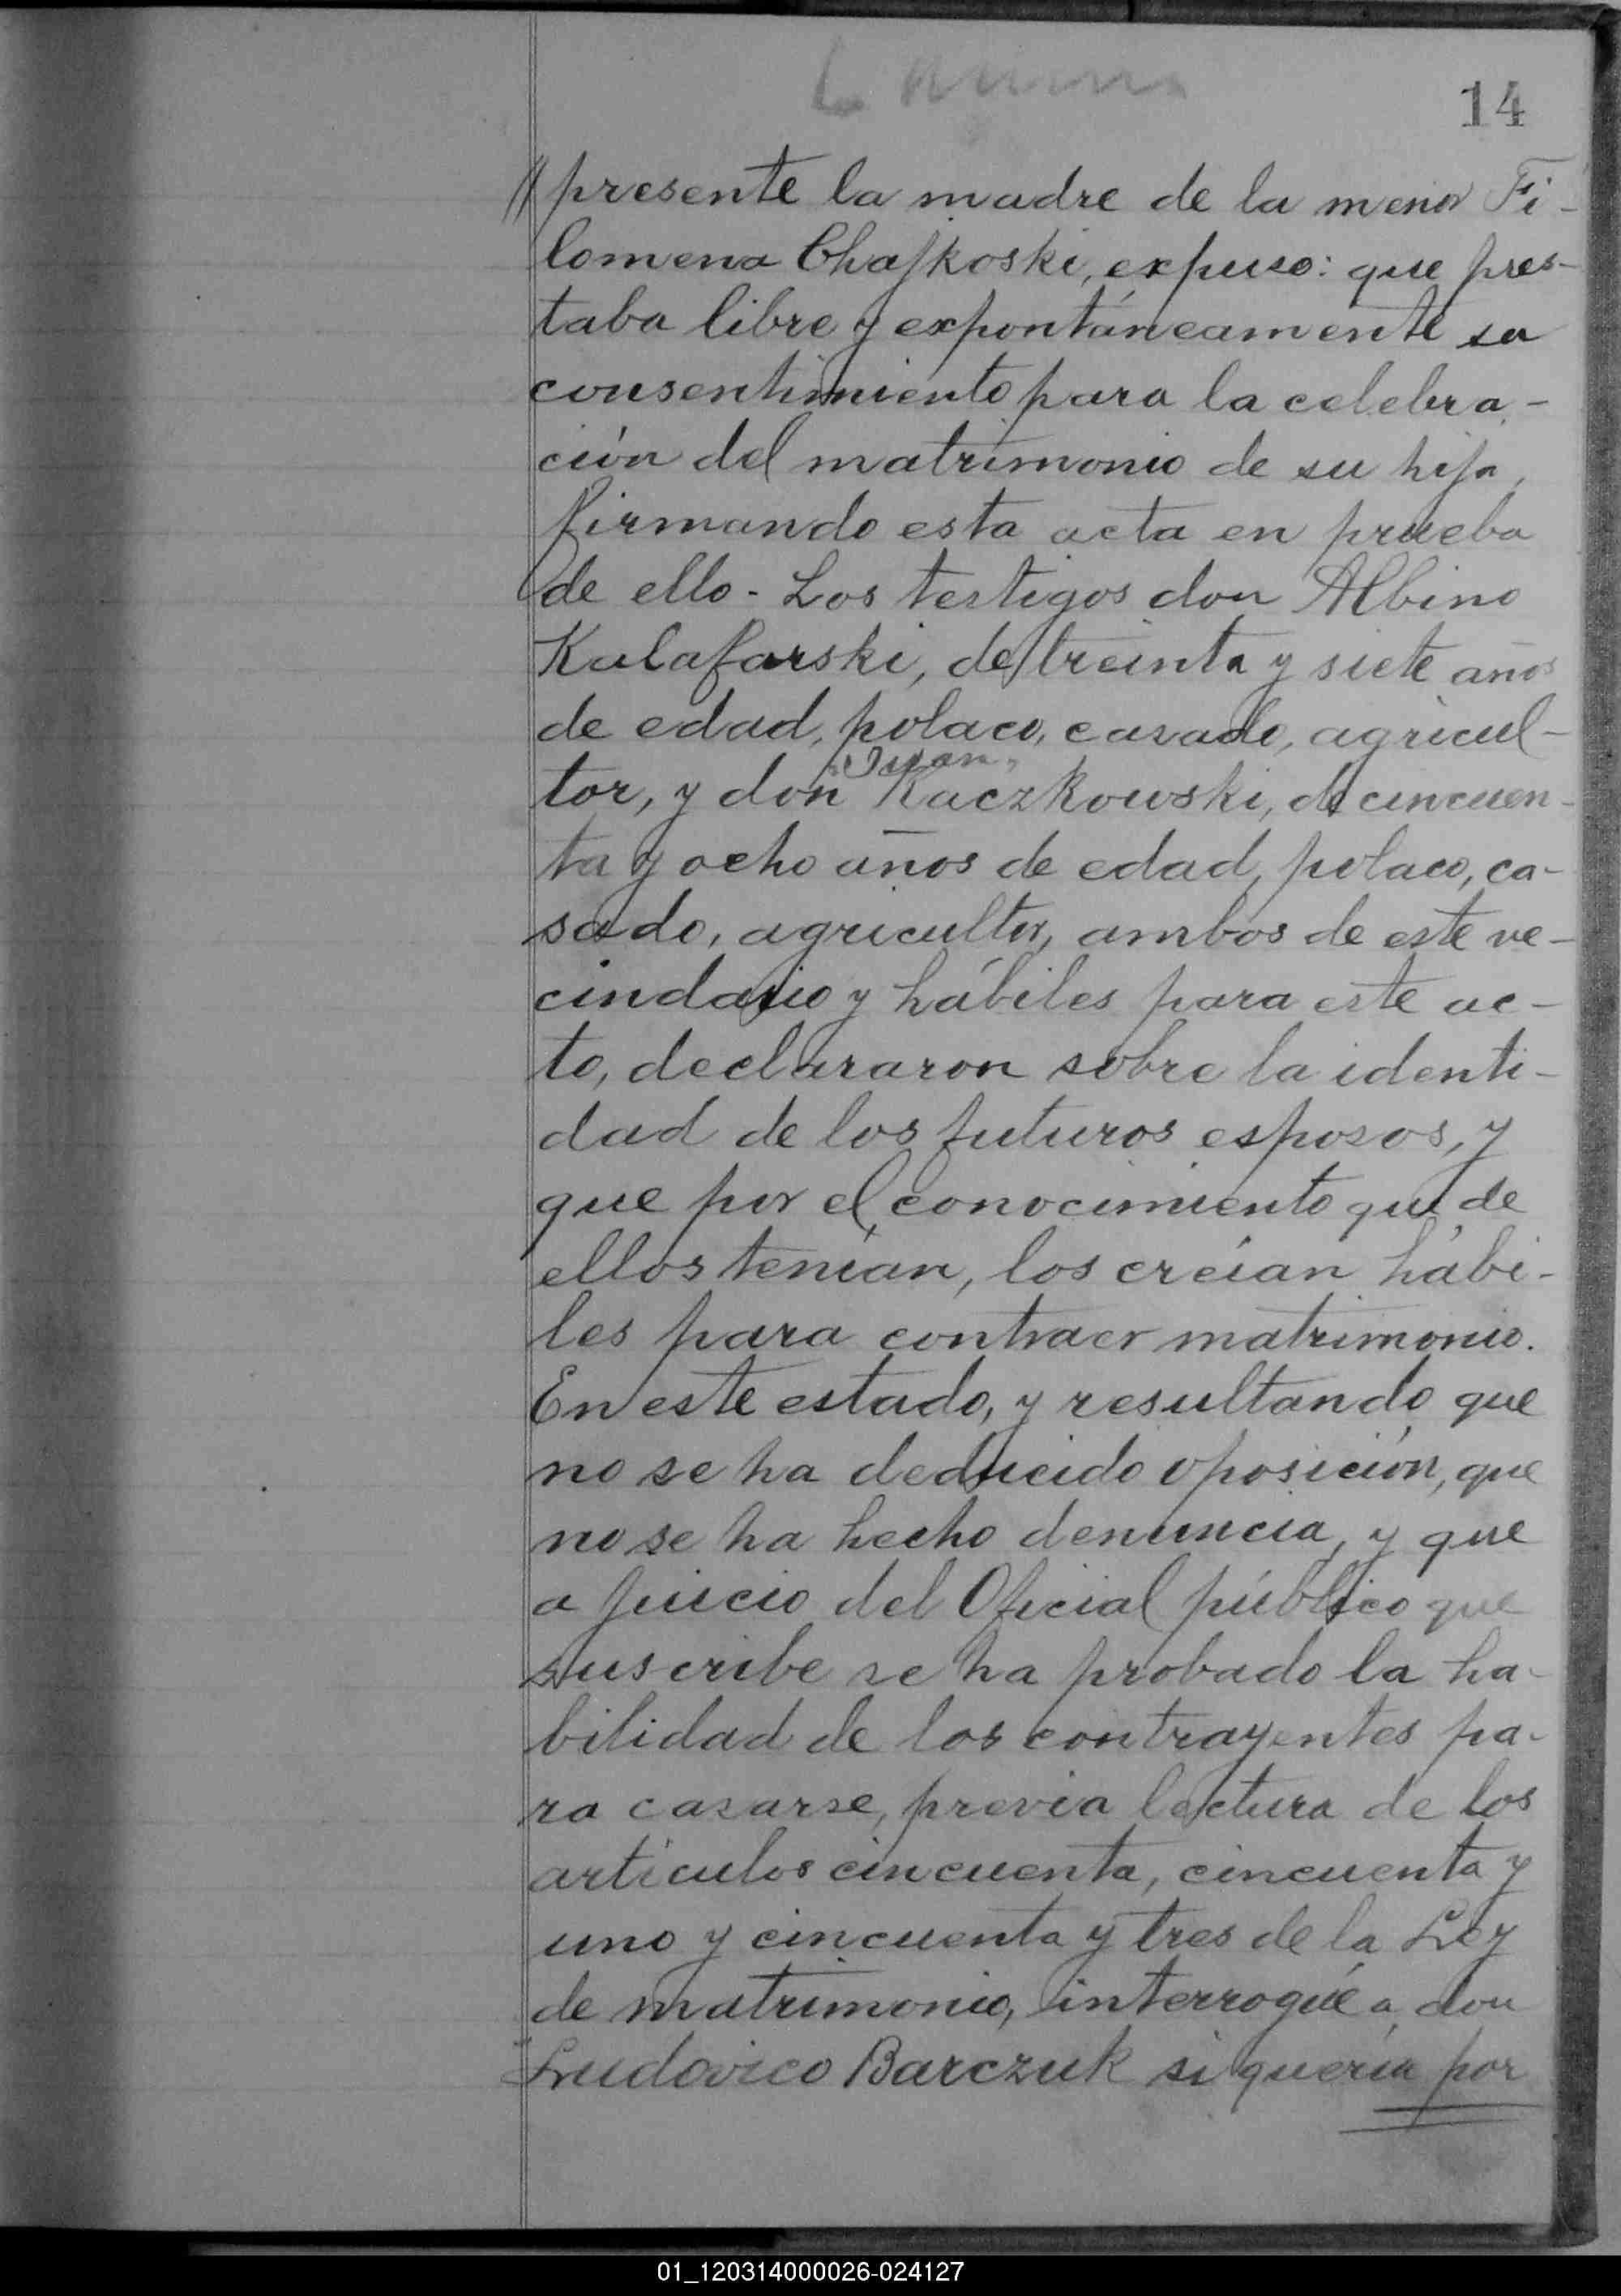 14
//presente la madre de la menor Fi-
lomena Chajkoski, expuso: que pres-
taba libre y expontáneamente su
consentimiento para la celebra-
ción del matrimonio de su hija,
firmando esta acta en prueba
de ello - Los testigos don Albino
Kulafarski, de treinta y siete años
de edad, polaco, casado, agricul-
"Juan"
tor, y don Kaczkowski, de cincuen-
ta y ocho años de edad, polaco, ca-
sado, agricultor, ambos de este ve-
cindario y hábiles para este ac-
to, declararon sobre la identi-
dad de los futuros esposos, y
que por el conocimiento que de
ellos tenían, los creían hábi-
les para contraer matrimonio.
En este estado, y resultando que
no se ha deducido oposición, que
no se ha hecho denuncia, y que
a juicio del Oficial público que
suscribe se ha probado la ha-
bilidad de los contrayentes pa-
ra casarse, previa lectura de los
artículos cincuenta, cincuenta y
uno y cincuenta y tres de la Ley
de matrimonio, interrogué a don
Ludovico Barczuk si quería por
01_120314000026-024127